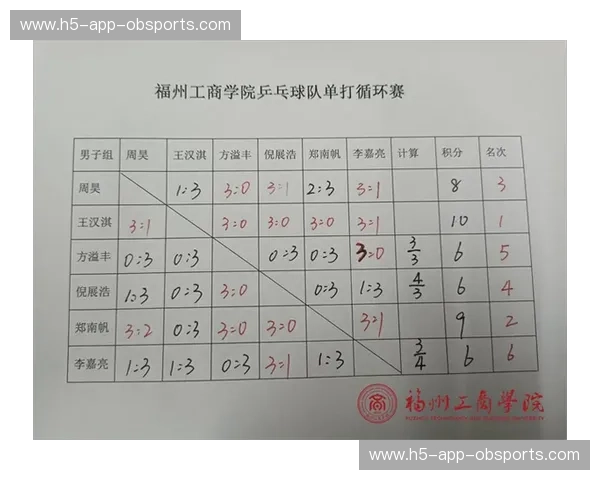 www.h5-app-obsports.com
福州工商学院乒乓球队单打循环赛
男子组 周昊 王汉淇 方溢丰 倪展浩 郑南帆 李嘉亮 计算 积分 名次
周昊 1:3 3:0 3:1 2:3 3:1 8 3
王汉淇 3:1 3:0 3:0 3:0 3:1 10 1
方溢丰 0:3 0:3 0:3 0:3 3:0 3/3 6 5
倪展浩 1:3 0:3 3:0 0:3 1:3 4/3 6 4
郑南帆 3:2 0:3 3:0 3:0 3:1 9 2
李嘉亮 1:3 1:3 0:3 3:1 1:3 3/4 6 6
福州工商學院
www.h5-app-obsports.com